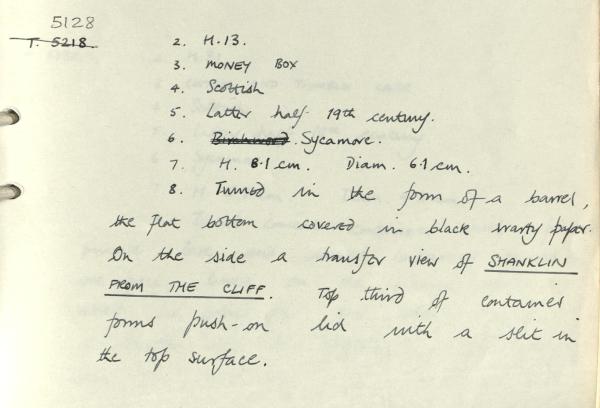 5128
T. 5218.
2. H.13.
3. MONEY BOX
4. Scottish
5. Latter half 19th century.
6. Birchwood Sycamore.
7 H. 8.1 cm. Diam. 6.1 cm.
8. Turned in the form of a barrel,
the flat bottom covered in black warty paper.
On the side a transfer view of SHANKLIN
FROM THE CLIFF. Top third of container
forms push-on lid with a slit in
the top surface.